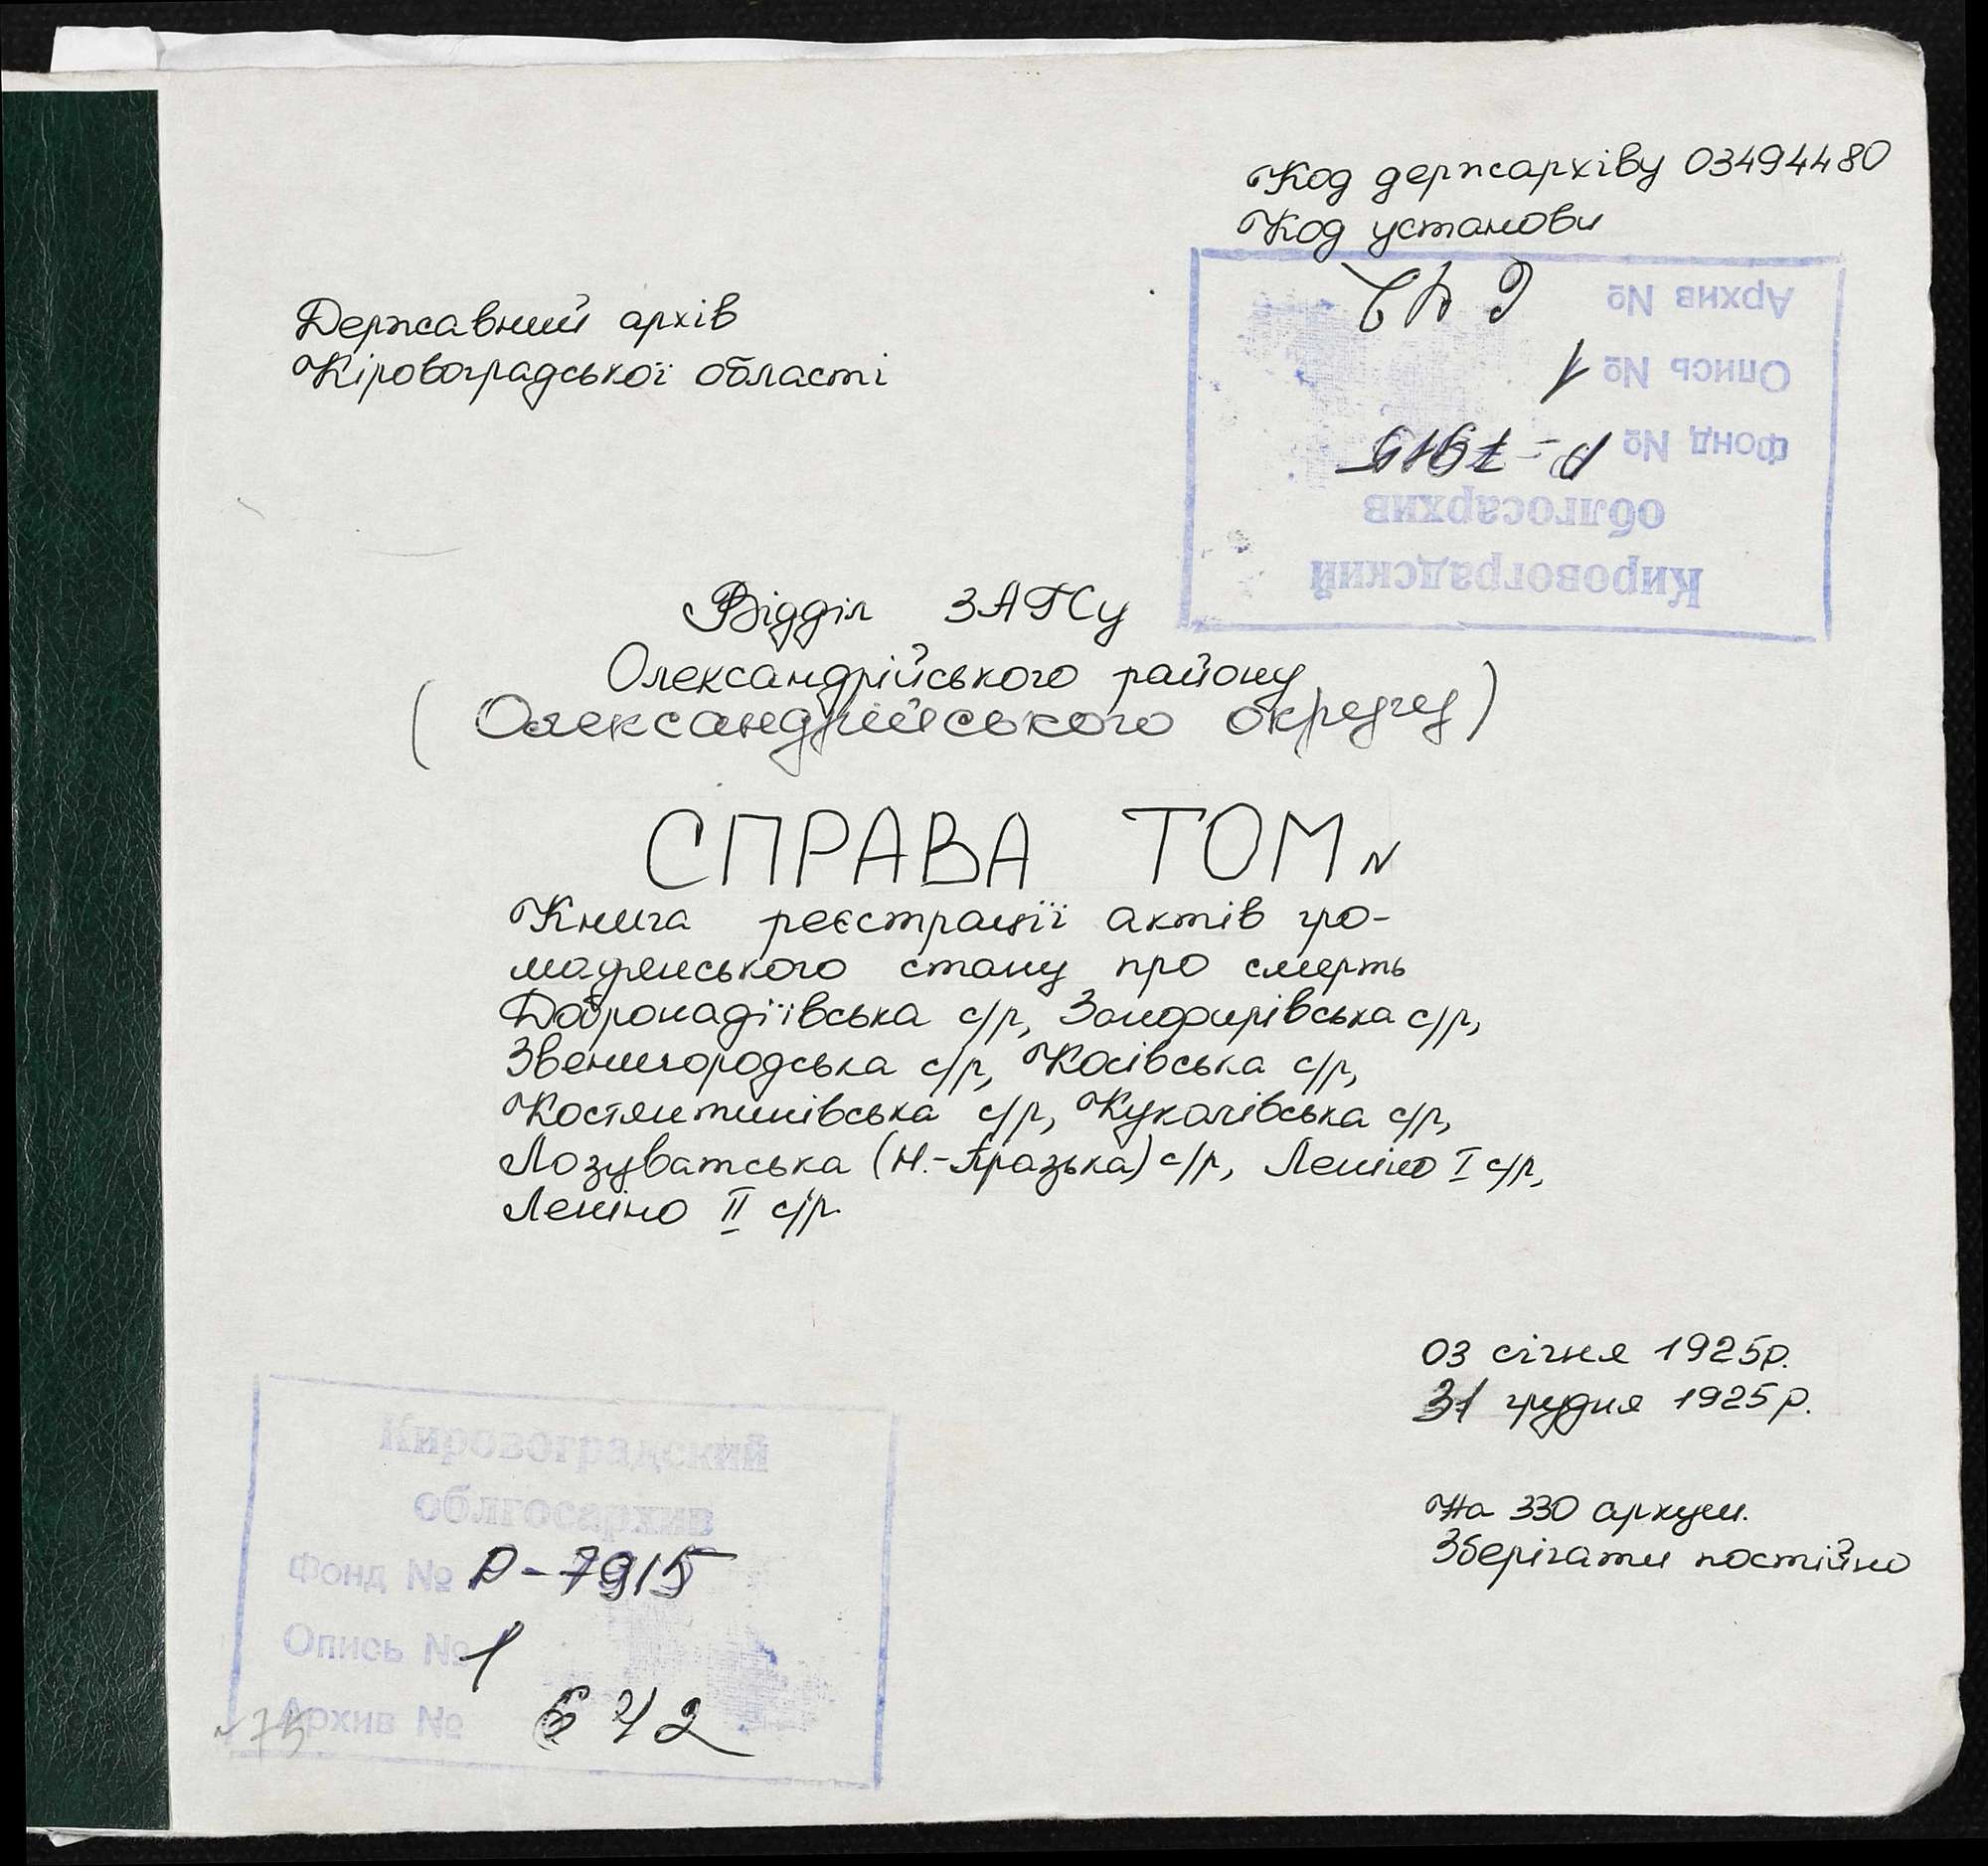 Код держархіву 03494480
Код установи
Державний архів
Кіровоградської області
Кировоградский
облгосархив
Фонд № Р-7915
Опись № 1
Архив № 642
Відділ ЗАГСу
Олександрійського району
(Олександрійського округу)
СПРАВА ТОМ N
Книга реєстрації актів гро-
мадянського стану про смерть
Добронадіївська с/р, Занфирівська с/р,
Звенигородська с/р, Косівська с/р,
Костянтинівська с/р, Куколівська с/р,
Лозуватська (Н.-Празька) с/р, Леніно I с/р,
Леніно II с/р
03 січня 1925р.
31 грудня 1925р.
На 330 аркуш.
Зберігати постійно
Кировоградский
облгосархив
Фонд № Р-7915
Опись № 1
Архив № 642
N 75